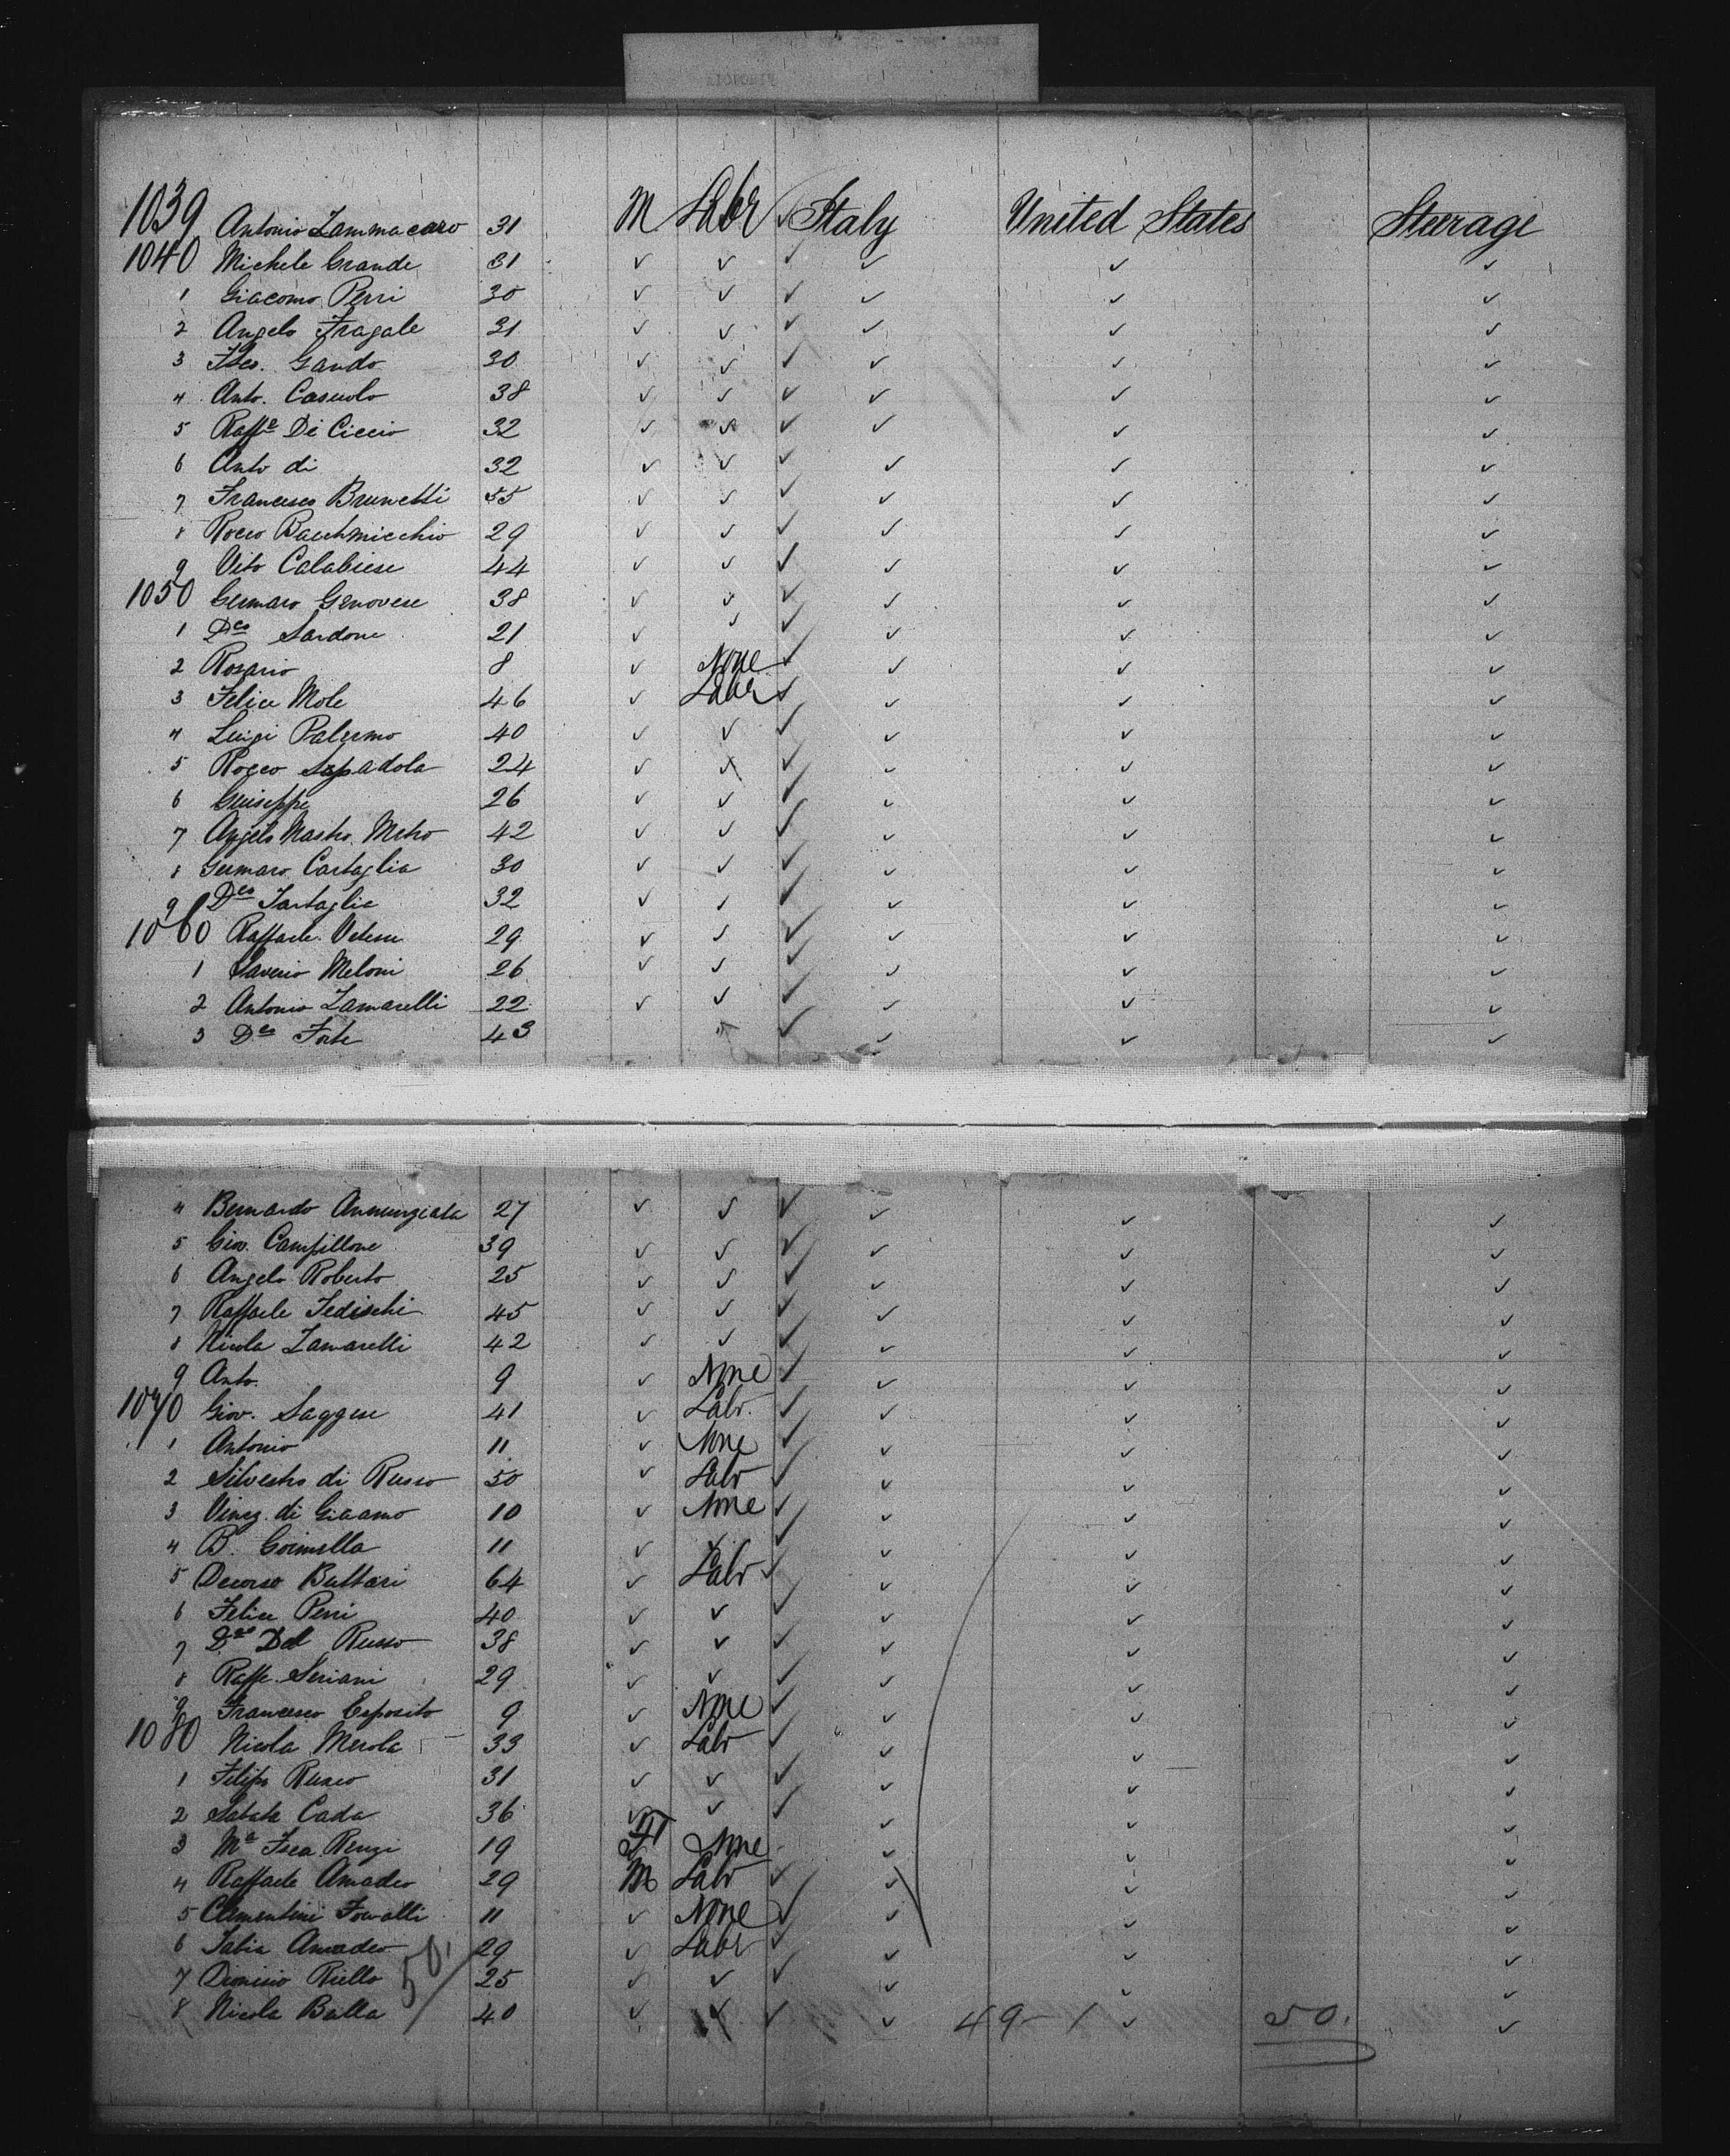 1039 Antonio Zammacaro 31 M Labr ✓ Italy United States Steerage
1040 Michele Grande 31 ✓ ✓ ✓ ✓ ✓ ✓
1 Giacomo Perri 30 ✓ ✓ ✓ ✓ ✓ ✓
2 Angelo Fragale 31 ✓ ✓ ✓ ✓ ✓ ✓
3 Fsco. Gando 30 ✓ ✓ ✓ ✓ ✓ ✓
4 Anto. Casuolo 38 ✓ ✓ ✓ ✓ ✓ ✓
5 Raffe Di Ciccio 32 ✓ ✓ ✓ ✓ ✓ ✓
6 Anto di 32 ✓ ✓ ✓ ✓ ✓ ✓
7 Francesco Brunetti 55 ✓ ✓ ✓ ✓ ✓ ✓
8 Rocco 29 ✓ ✓ ✓ ✓ ✓ ✓
9 Vito Calabrese 44 ✓ ✓ ✓ ✓ ✓ ✓
1050 Gennaro Genovese 38 ✓ ✓ ✓ ✓ ✓ ✓
1 Dco Sardone 21 ✓ ✓ ✓ ✓ ✓ ✓
2 Rosario 8 ✓ None ✓ ✓ ✓ ✓
3 Felice Mole 46 ✓ Labr ✓ ✓ ✓ ✓
4 Luigi Palermo 40 ✓ ✓ ✓ ✓ ✓ ✓
5 Rocco Sapadola 24 ✓ ✓ ✓ ✓ ✓ ✓
6 Giuseppe 26 ✓ ✓ ✓ ✓ ✓ ✓
7 Angelo Mastro Metro 42 ✓ ✓ ✓ ✓ ✓ ✓
8 Gennaro Cartaglia 30 ✓ ✓ ✓ ✓ ✓ ✓
9 Dco Tartaglia 32 ✓ ✓ ✓ ✓ ✓ ✓
1060 Raffaele Vetese 29 ✓ ✓ ✓ ✓ ✓ ✓
1 Saverio Meloni 26 ✓ ✓ ✓ ✓ ✓ ✓
2 Antonio Zamarelli 22 ✓ ✓ ✓ ✓ ✓ ✓
3 Dco Forte 43 ✓ ✓ ✓ ✓ ✓
4 Bernardo Annunziata 27 ✓ ✓ ✓ ✓ ✓ ✓
5 Giov. Campillone 39 ✓ ✓ ✓ ✓ ✓ ✓
6 Angelo Roberto 25 ✓ ✓ ✓ ✓ ✓ ✓
7 Raffaele Tedischi 45 ✓ ✓ ✓ ✓ ✓ ✓
8 Nicola Zamarelli 42 ✓ ✓ ✓ ✓ ✓ ✓
9 Anto. 9 ✓ None ✓ ✓ ✓ ✓
1070 Giov. Saggese 41 ✓ Labr. ✓ ✓ ✓ ✓
1 Antonio 11 ✓ None ✓ ✓ ✓ ✓
2 Silvestro di Russo 50 ✓ Labr ✓ ✓ ✓ ✓
3 Vincz. di Giacomo 10 ✓ None ✓ ✓ ✓ ✓
4 B. 11 ✓ ✓ ✓ ✓ ✓ ✓
5 Decorso Buttari 64 ✓ Labr ✓ ✓ ✓ ✓
6 Felice Perri 40 ✓ ✓ ✓ ✓ ✓ ✓
7 Dco Del Russo 38 ✓ ✓ ✓ ✓ ✓ ✓
8 Raffe. Seriani 29 ✓ ✓ ✓ ✓ ✓ ✓
9 Francesco Esposito 9 ✓ None ✓ ✓ ✓ ✓
1080 Nicola Merola 33 ✓ Labr ✓ ✓ ✓ ✓
1 Filipo Russo 31 ✓ ✓ ✓ ✓ ✓ ✓
2 Sabata Cada 36 ✓ ✓ ✓ ✓ ✓ ✓
3 Ma Fsca Renzi 19 F None ✓ ✓ ✓
4 Raffaele Amadeo 29 M Labr ✓ ✓ ✓ ✓
5 Clementini 11 ✓ None ✓ ✓ ✓ ✓
6 Sabia Amadeo 29 ✓ Labr ✓ ✓ ✓ ✓
7 Dionisio Riello 25 ✓ ✓ ✓ ✓ ✓ ✓
50
8 Nicola Balla 40 ✓ ✓ ✓ ✓ 49-1 ✓ 50. ✓